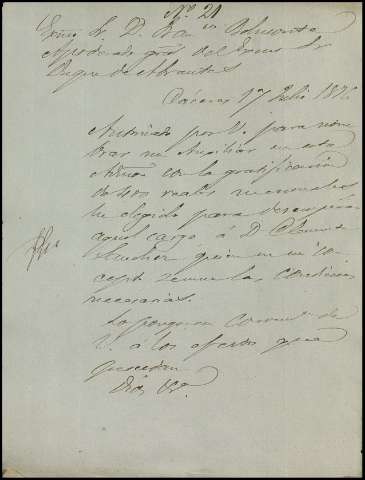 Nº 21
Sr. D. Fran.co
Apoderado gral del Excmo Sr
Duque de Abrantes
Cáceres 17 Julio 187
Autorizado por V. para nom
brar un Auxiliar en esta
Admon con la gratificación
de 400 reales mensuales
he elegido para desempeñar
aquel cargo á D. Clemente
Sanchez quien en mi con
cepto reune las condiciones
necesarias.
Lo pongo en conocim.to de
V. á los efectos que
procedan
Dios